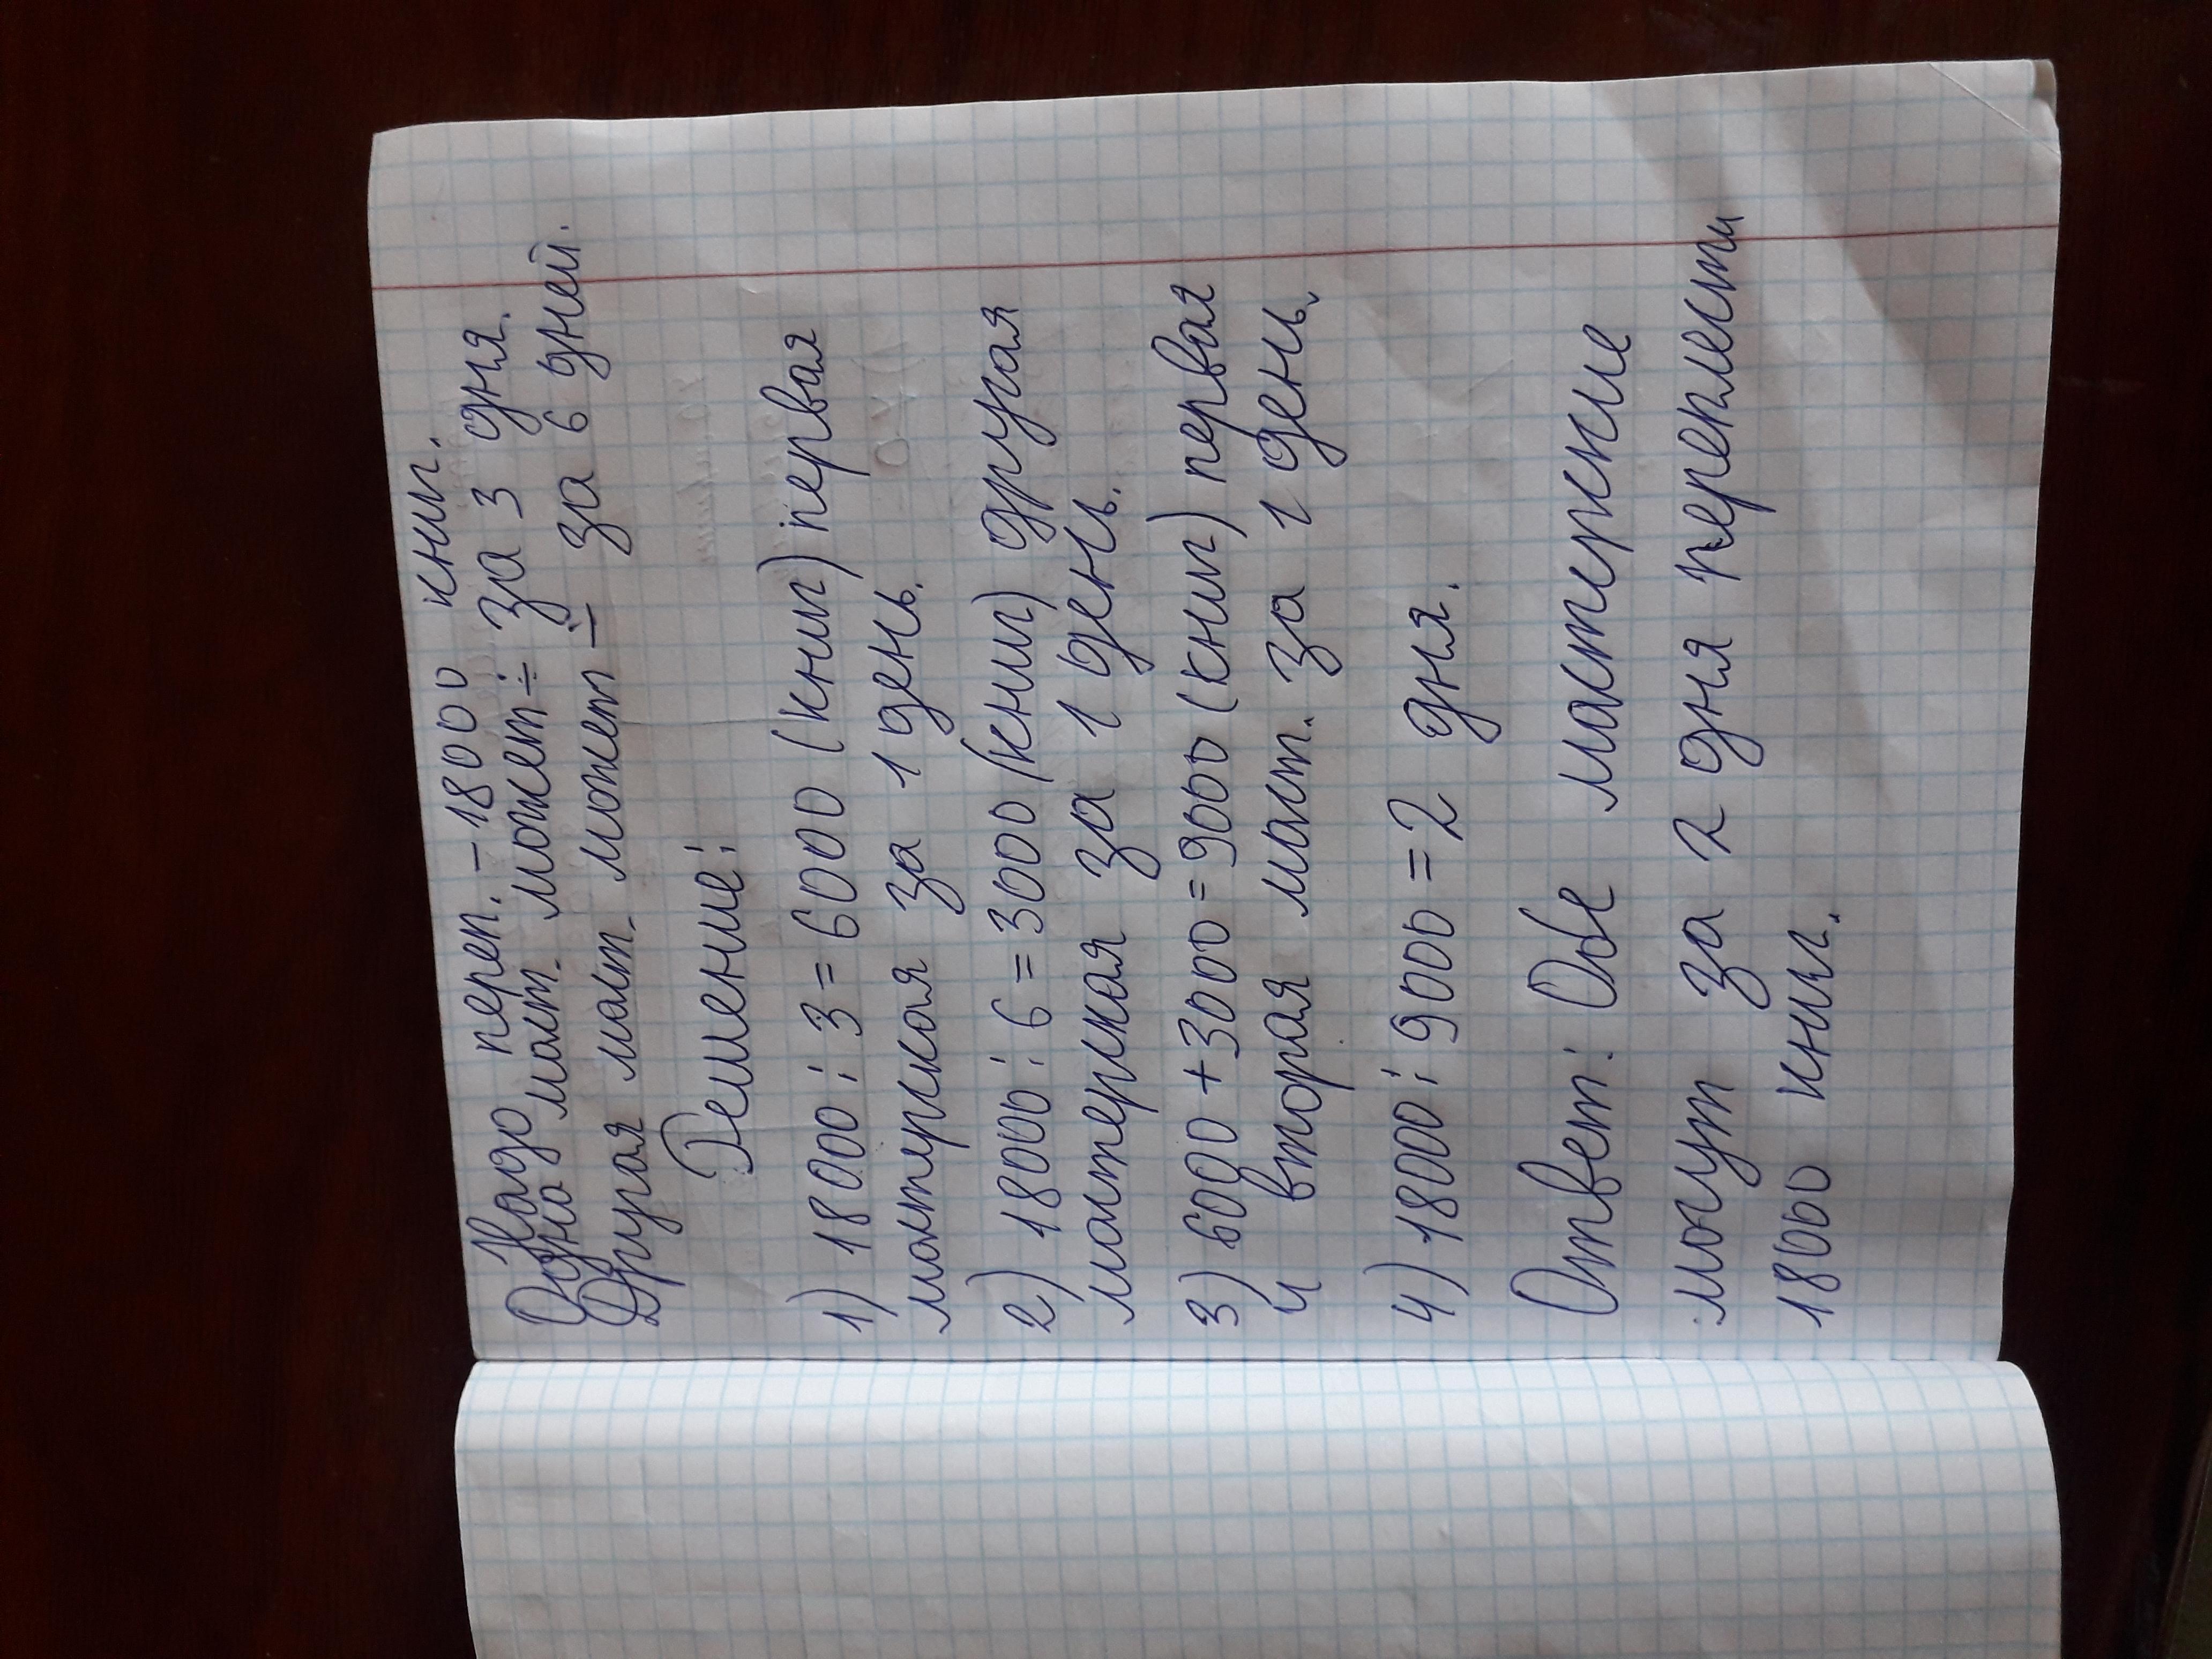 Надо переп. - 18000 книг.
Одна маст. может ÷ за 3 дня.
Другая маст. может ÷ за 6 дней.
Решение:
1) 18000 : 3 = 6000 (книг) первая
мастерская за 1 день.
2) 18000 : 6 = 3000 (книг) другая
мастерская за 1 день.
3) 6000 + 3000 = 9000 (книг) первая
и вторая маст. за 1 день.
4) 18000 : 9000 = 2 дня.
Ответ: Обе мастерские
могут за 2 дня переплести
18000 книг.